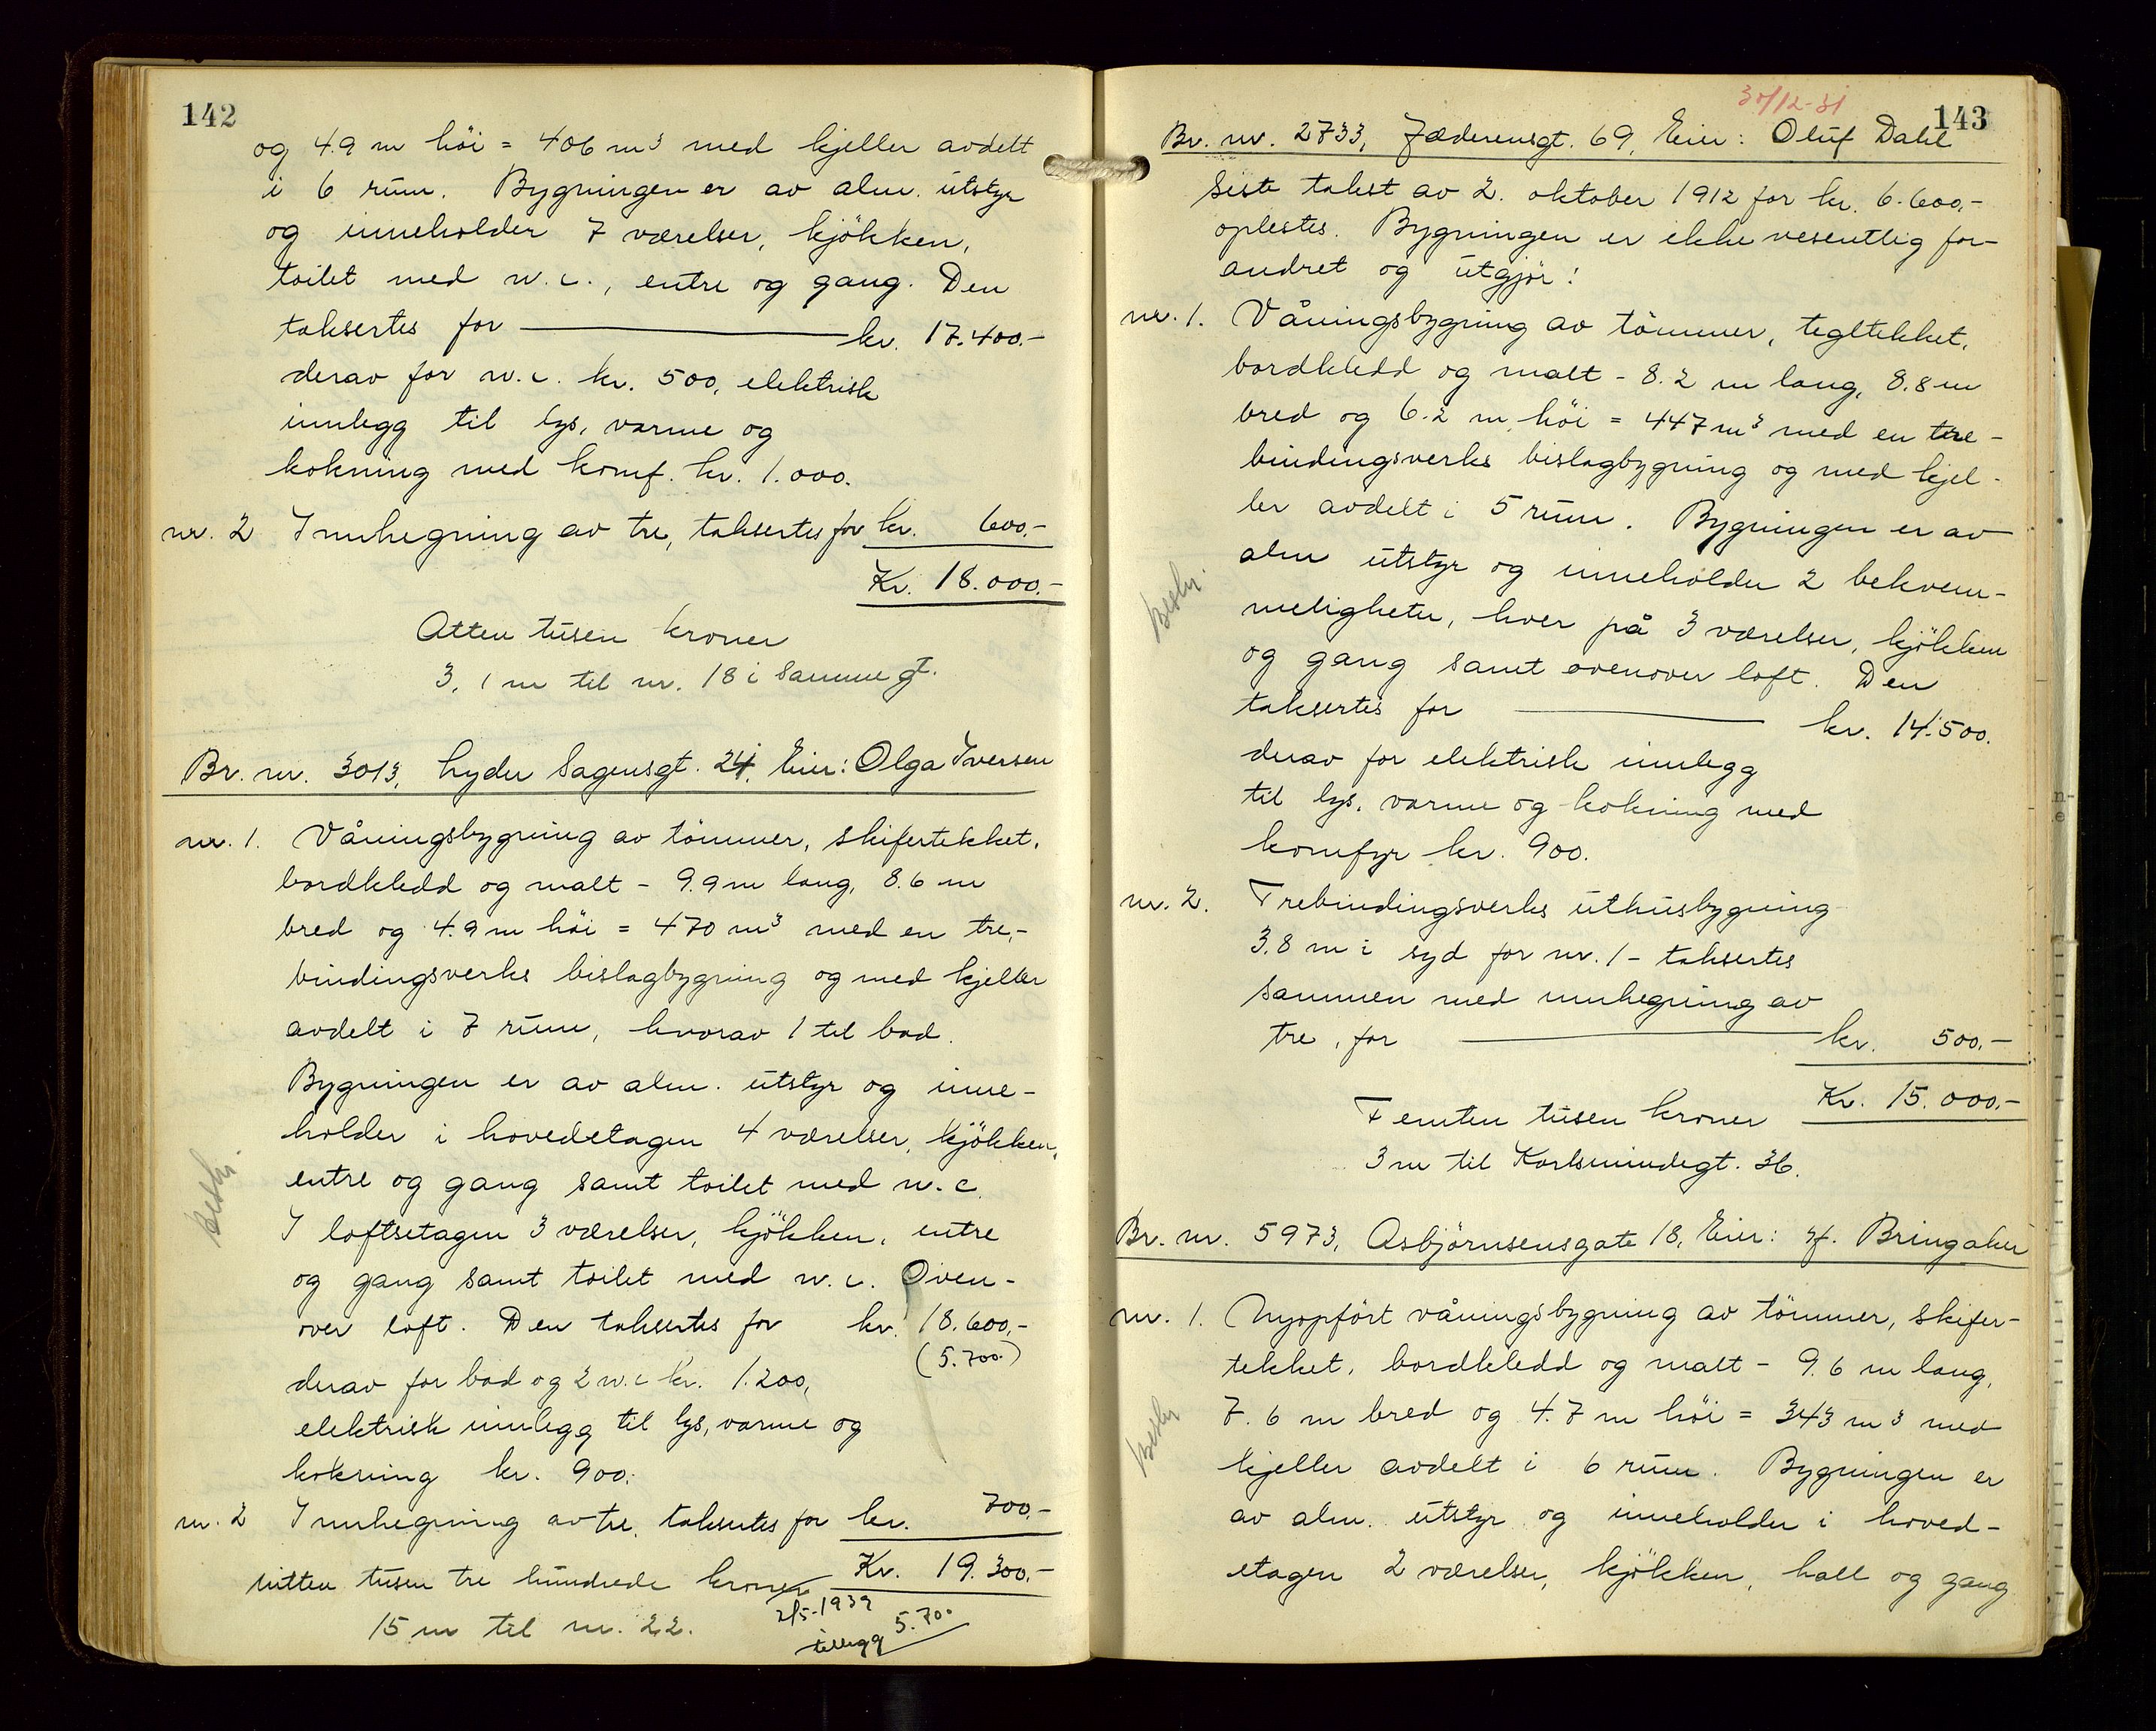 142
og 4.9 m höi = 406 m³ med kjeller avdelt
i 6 rum. Bygningen er av alm. utstyr
og inneholder 7 værelser, kjökken,
toilet med w.c., entre og gang. Den
taksertes for kr. 17.400.-
derav for w.c. kr. 500, elektrisk
innlegg til lys, varme og
kokning med komf. kr. 1.000.
nr. 2 Innhegning av tre, taksertes for kr. 600.-
Kr. 18.000.-
Atten tusen kroner
3,1 m til nr. 18 i samme gt.
Br. nr. 3013, Lyder Sagensgt. 24, Eier: Olga Iversen
nr. 1. Våningsbygning av tömmer, skifertekket,
bordkledd og malt - 9.9 m lang, 8.6 m
bred og 4.9 m höi = 470 m³ med en tre-
bindingsverks bislagbygning og med kjeller
avdelt i 7 rum, hvorav 1 til bad.
Bygningen er av alm. utstyr og inne-
holder i hovedetagen 4 værelser, kjökken,
entre og gang samt toilet med w.c.
I loftsetagen 3 værelser, kjökken, entre
og gang samt toilet med w.c. Oven-
over loft. Den taksertes for kr. 18.600.-
(5.700.)
derav for bad og 2 w.c kr. 1.200,
elektrisk innlegg til lys, varme og
kokning kr. 900.
nr. 2 Innhegning av tre, taksertes for kr. 700.-
Kr. 19.300.-
nitten tusen tre hundrede kroner
15 m til nr. 22.
2/5-1939
tillegg 5.700
beskr.
30/12-31
143
Br. nr. 2733, Jæderensgt. 69, Eier: Oluf Dahl
Siste takst av 2. oktober 1912 for kr. 6.600,-
oplestes. Bygningen er ikke vesentlig for-
andret og utgjör:
nr. 1. Våningsbygning av tömmer, tegltekket,
bordkledd og malt - 8.2 m lang, 8.8 m
bred og 6.2 m höi = 447 m³ med en tre-
bindingsverks bislagbygning og med kjel-
ler avdelt i 5 rum. Bygningen er av
alm utstyr og inneholder 2 bekvem-
meligheter, hver på 3 værelser, kjökken
og gang samt ovenover loft. Den
taksertes for kr. 14.500.
derav for elektrisk innlegg
til lys, varme og kokning med
komfyr kr. 900.
nr. 2. Trebindingsverks uthusbygning
3.8 m i syd for nr. 1 - taksertes
sammen med innhegning av
tre, for kr. 500.-
Kr. 15.000.-
Femten tusen kroner
3 m til Karlsmindegt. 36.
beskr.
Br. nr. 5973, Asbjörnsensgate 18, Eier: H. Bringaker
nr. 1. Nyopfört våningsbygning av tömmer, skifer-
tekket, bordkledd og malt - 9.6 m lang,
7.6 m bred og 4.7 m höi = 343 m³ med
kjeller avdelt i 6 rum. Bygningen er
av alm. utstyr og inneholder i hoved-
etagen 2 værelser, kjökken, hall og gang
beskr